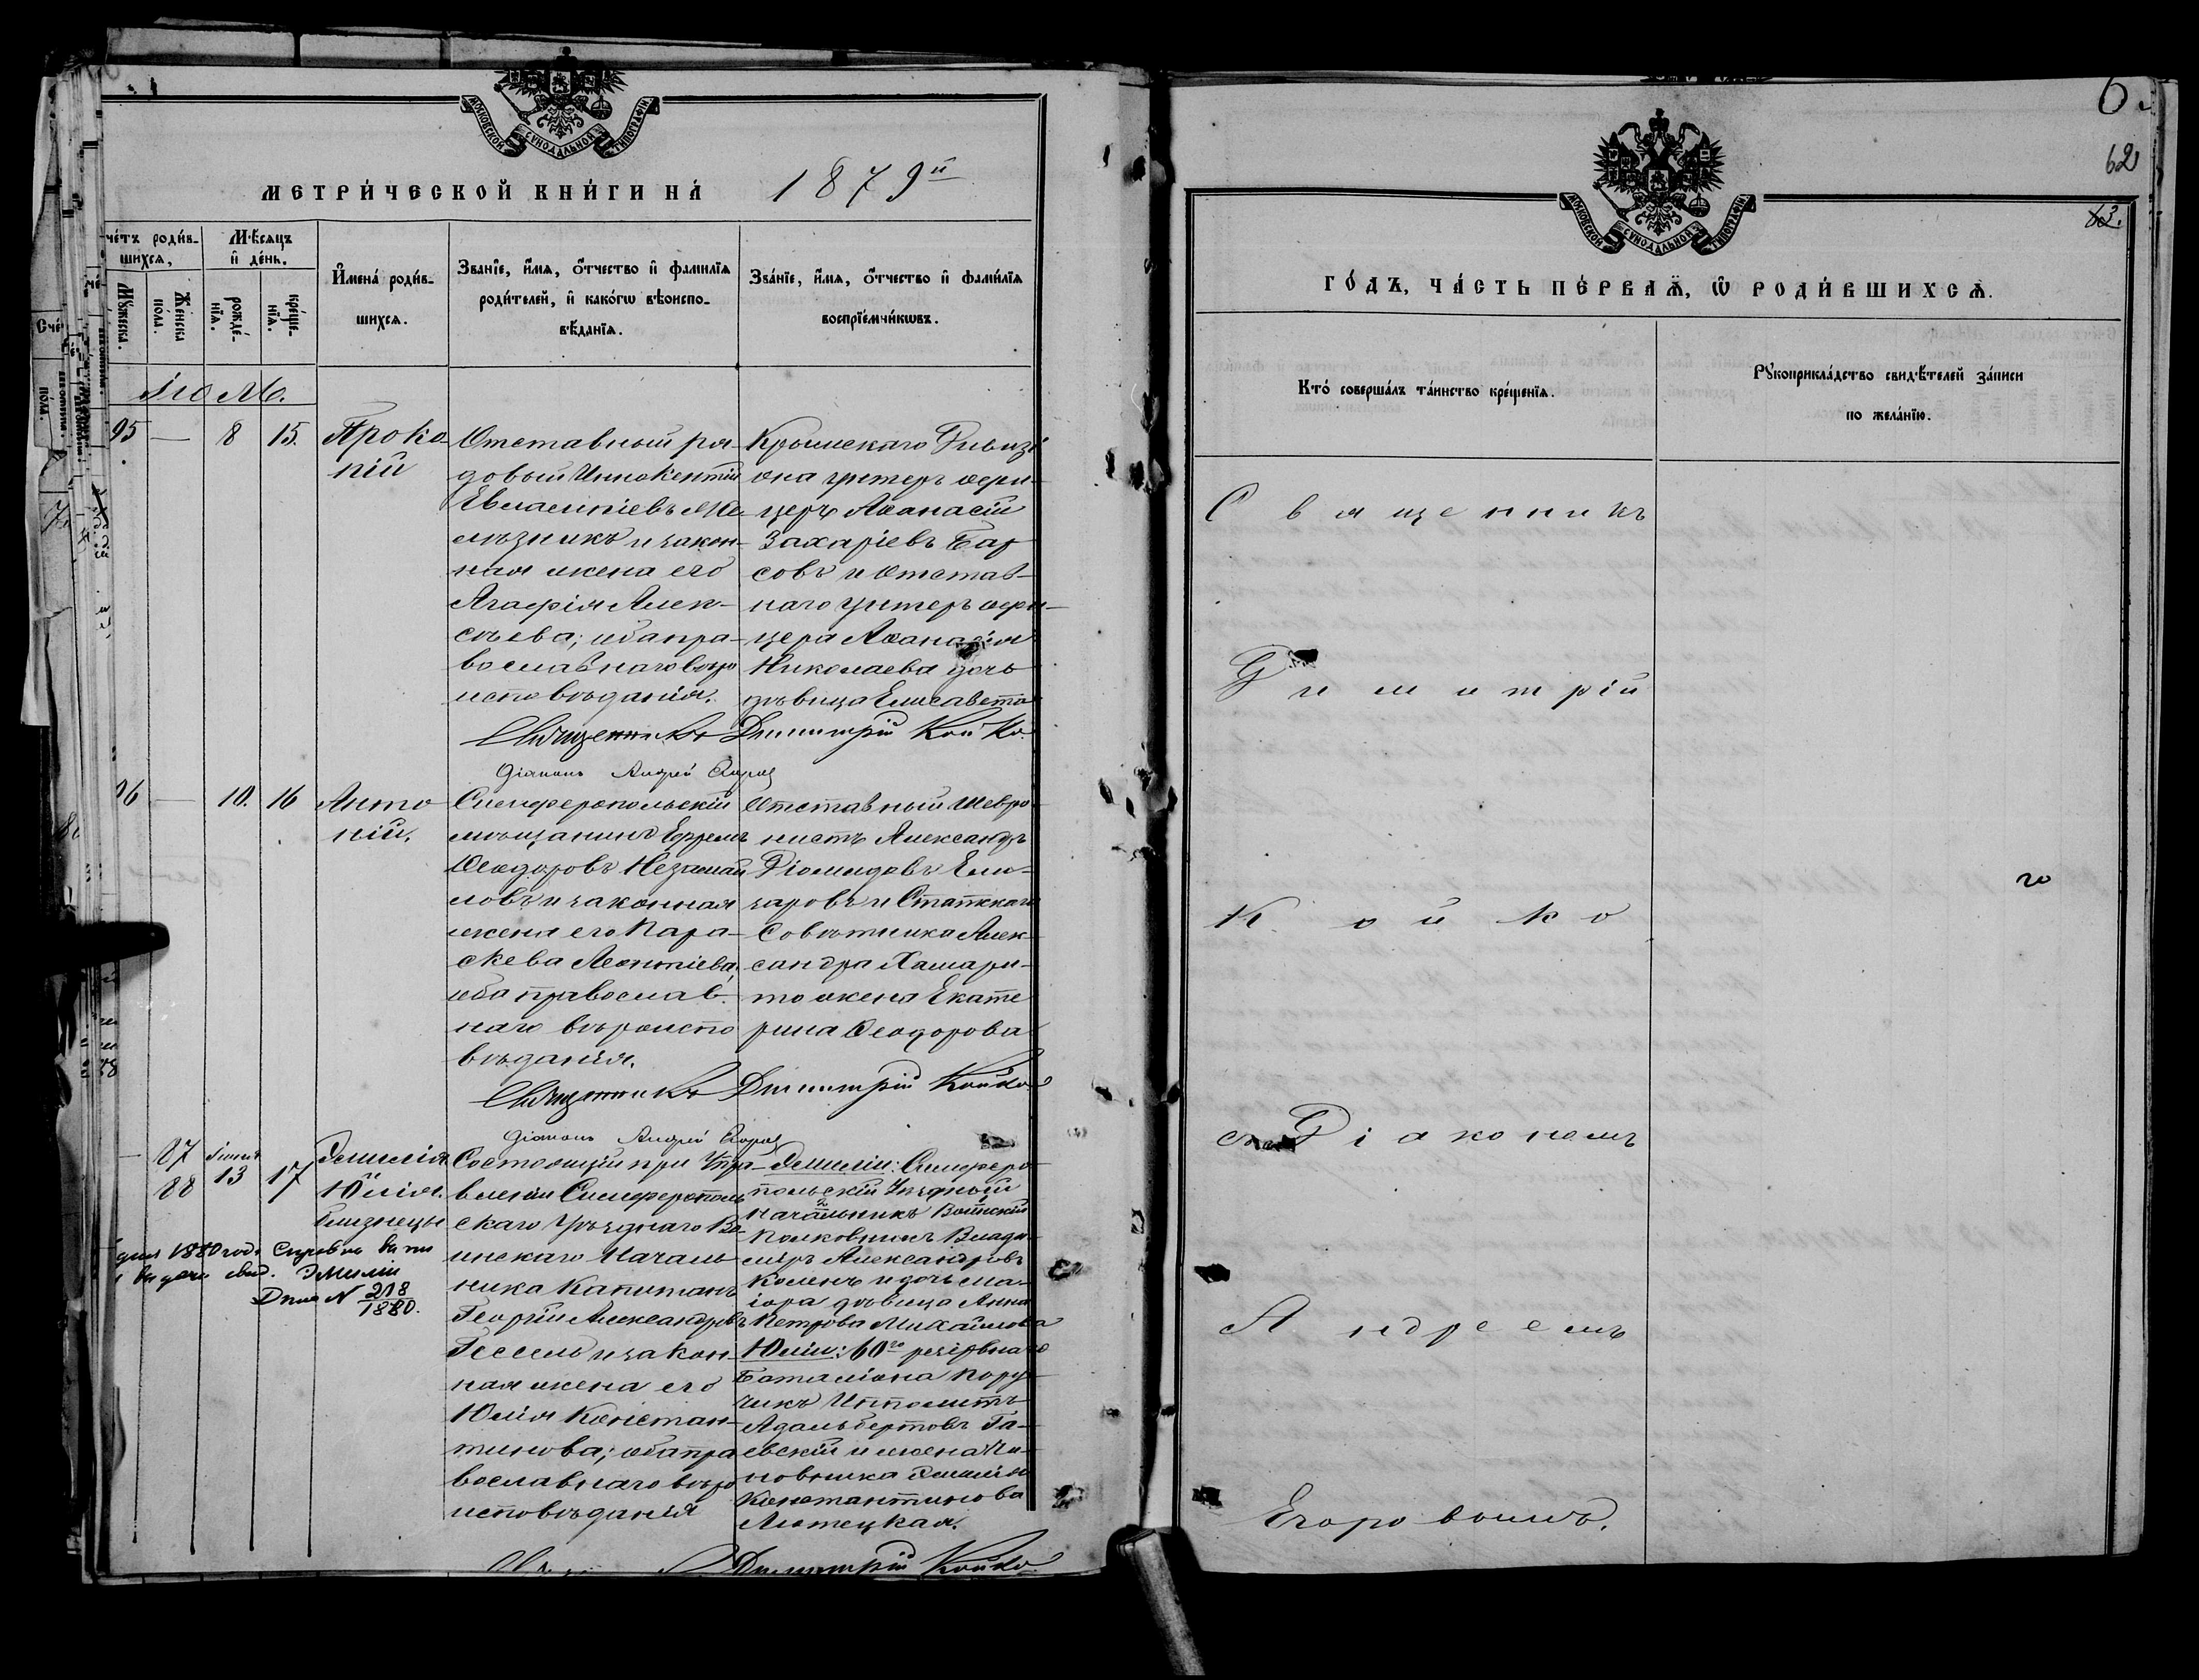 МОСКОВСКОЙ СѴНОДАЛЬНОЙ ТИПОГРАФІИ
МЕТРИ́ЧЕСКОЙ КНИ́ГИ НА́ 1879й
че́тъ роди́в-
шихсѧ,
Мѣ́сѧцъ
и҆ де́нь.
Мꙋ́жеска.
Же́нска
по́ла.
рожде́-
нїѧ.
креще́-
нїѧ.
И҆мена̀ роди́в-
шихсѧ.
Зва́нїе, и҆́мѧ, ѻ҆́тчество и҆ фами́лїѧ
роди́телей, и҆ како́гѡ вѣроиспо-
вѣ́данїѧ.
Зва́нїе, и҆́мѧ, ѻ҆́тчество и҆ фами́лїѧ
воспрїе́мникѡвъ.
Іюль.
95 — 8 15.
Проко-
пій
Отставный ря-
довый Иннокентій
Евлампіевъ Ме-
льзникъ и закон-
ная жена его
Агафія Алек-
сѣева; оба пра-
вославнаго вѣро
исповѣданія.
Крымскаго Дивизі
она унтеръ офи-
церъ Аѳанасій
Захаріевъ Бар
совъ и Отстав-
наго унтеръ офи-
цера Аѳанасія
Николаева дочь
дѣвица Елисавета
Священникъ Димитрій Койко
Діаконъ Андрей Егоровъ
96 — 10. 16
Анто
ній.
Симферопольскій
мѣщанинъ Ефремъ
Ѳеодоровъ Незамай
ловъ и законная
жена его Пара-
скева Леонтіева,
оба православ-
наго вѣроиспо
вѣданія.
Отставный Шевро
нистъ Александръ
Діомидовъ Ели-
заровъ и Статскаго
Совѣтника Алек-
сандра Хамари-
то жена Екате
рина Ѳеодорова
Священникъ Димитрій Койко
Діаконъ Андрей Егоровъ
— 87 13 17
88
Эмилія
Юлія.
близнецы
Состоящій при Упра-
вленіи Симферополь
скаго Уѣзднаго Во-
инскаго Началь
ника Капитанъ
Георгій Александровъ
Гессель и закон-
ная жена его
Юлія Констан-
тинова; оба пра
вославнаго вѣро
исповѣданія
Эмиліи: Симферо
польскій Уѣздный
Начальникъ Воинскій
Полковникъ Влади
міръ Александровъ
Коленъ и дочь Ма-
іора дѣвица Анна
Петрова Михайлова
Юліи: 60го резервнаго
Баталіона Пору-
чикъ Ипполитъ
Адальбертовъ Га-
евскій и жена Чи-
новника Эмилія
Константинова
Лютецкая.
дня 1880 года
выдачи свид. Эмиліи
Дѣло N 218
1880.
Димитрій Койко
6
62
63.
МОСКОВСКОЙ СѴНОДАЛЬНОЙ ТИПОГРАФІИ
ГО́ДЪ, ЧА́СТЬ ПЕ́РВАѦ, Ѡ҆ РОДИ́ВШИХСѦ.
Кто̀ соверша́лъ та́инство креще́нїѧ.
Рꙋкоприкла́дство свидѣ́телей за́писи
по жела́нїю.
Священникъ
Димитрій
го
Койко
съ Діакономъ
Андреемъ
Егоровымъ.